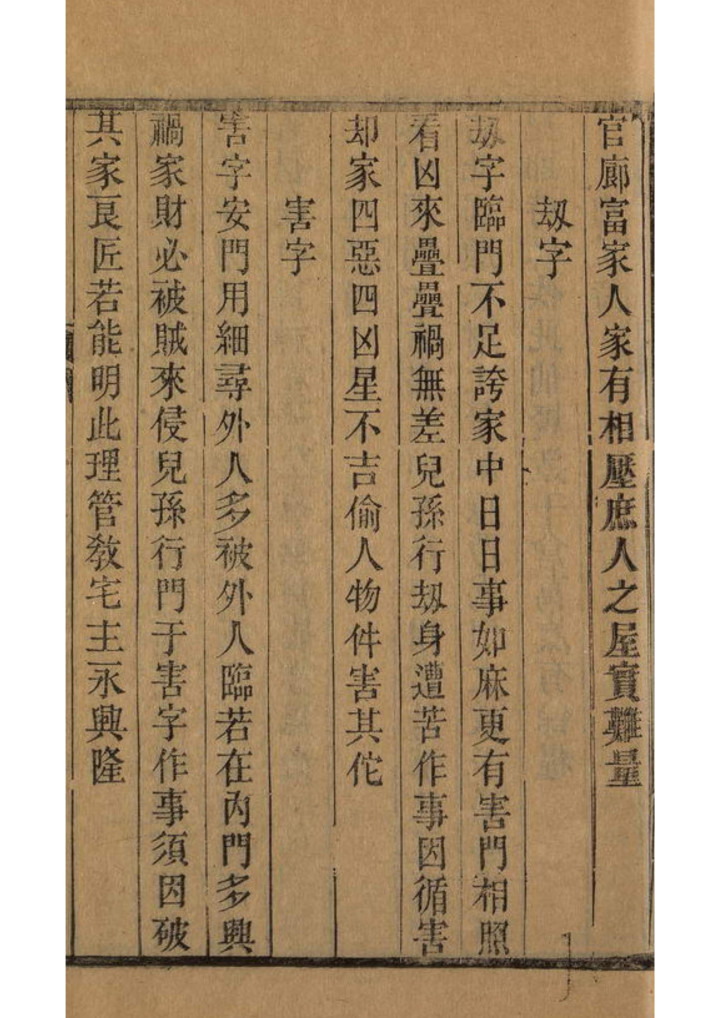 官廊富家人家有相壓庶人之屋實難量
刼字
刼字臨門不足誇家中日日事如麻更有害門相照
看凶來疊疊禍無差兒孫行刼身遭苦作事因循害
却家四惡四凶星不吉偷人物件害其佗
害字
害字安門用細尋外人多被外人臨若在內門多興
禍家財必被賊來侵兒孫行門于害字作事須因破
其家良匠若能明此理管敎宅主永興隆